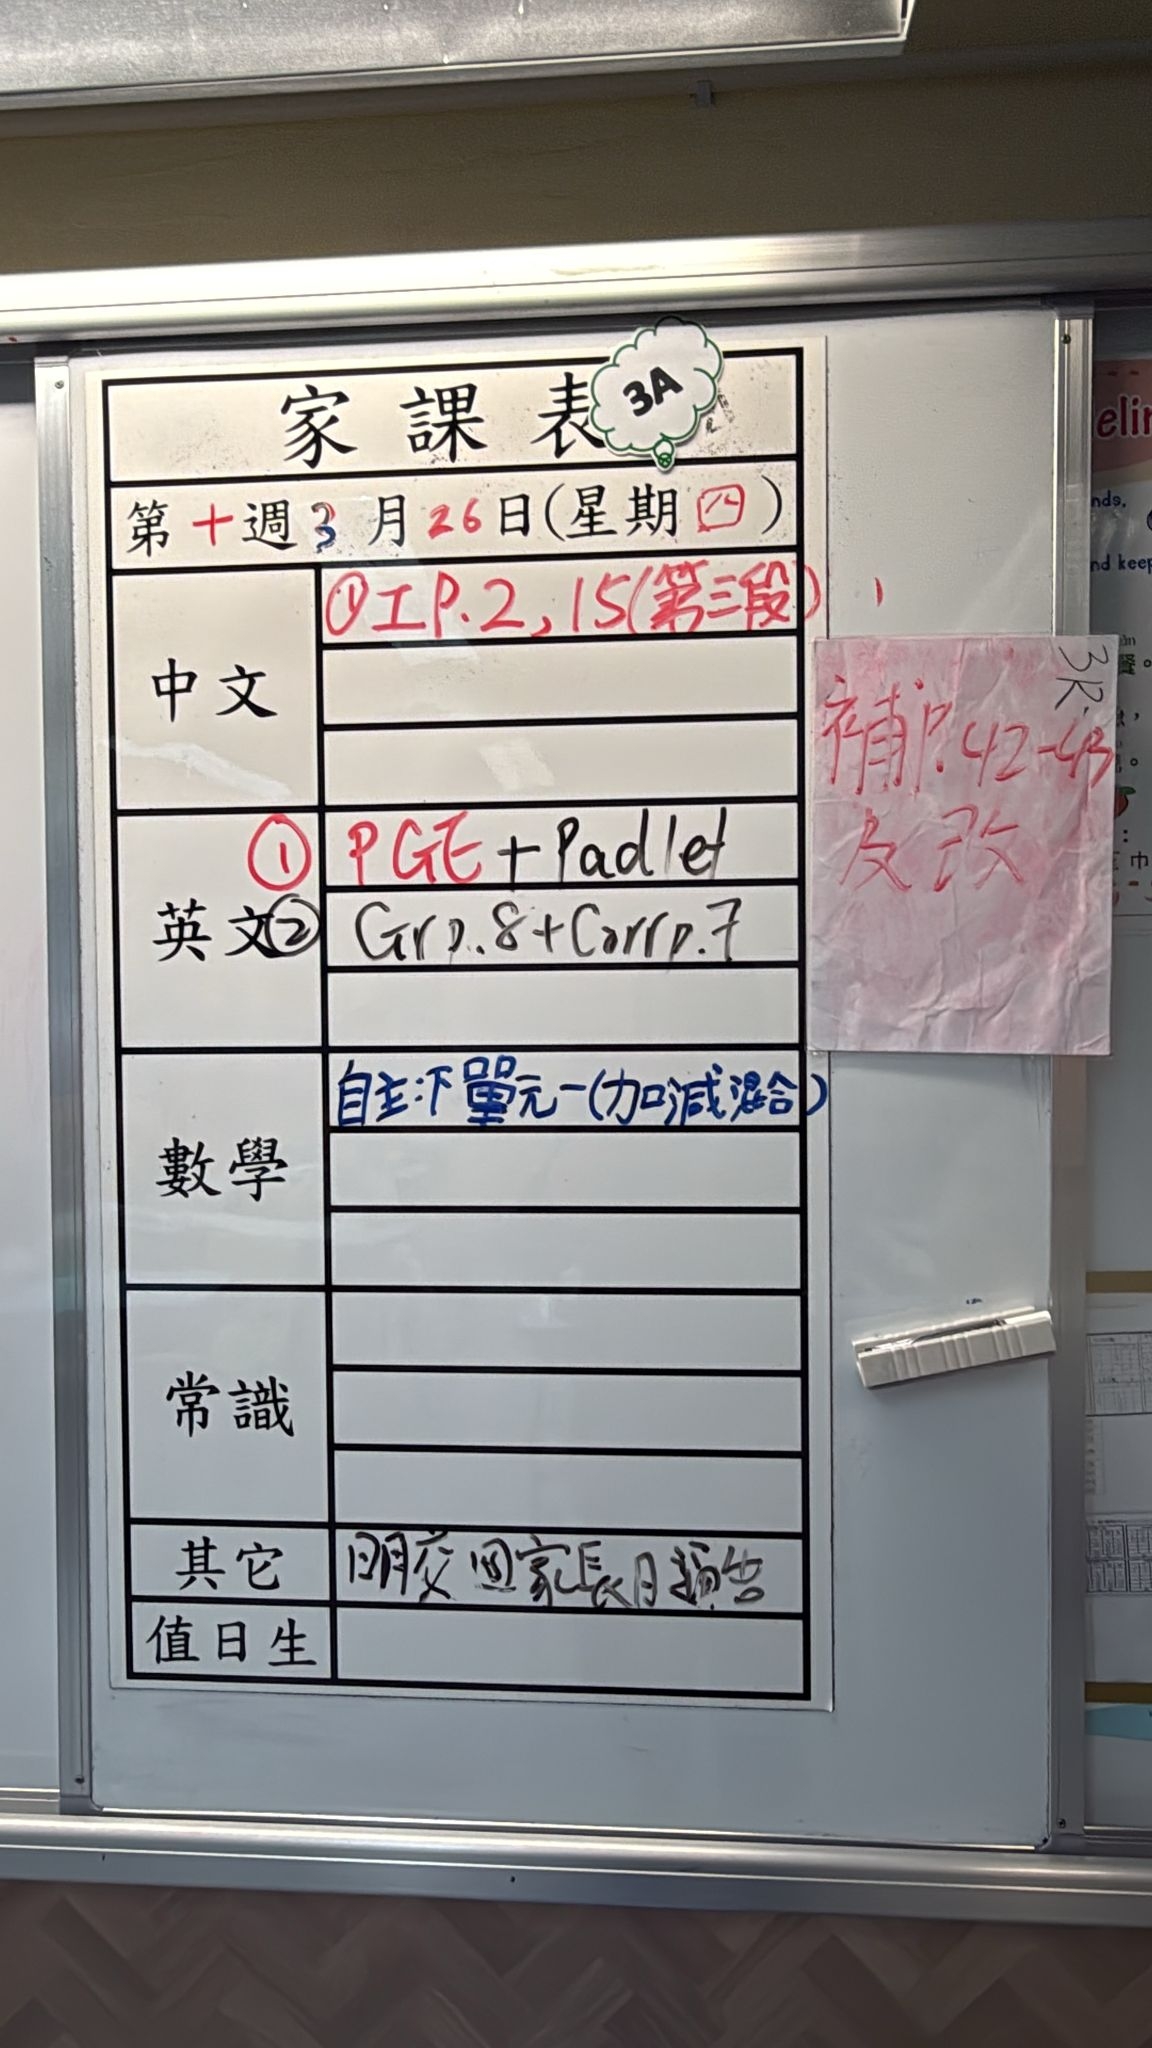 家課表
3A
第十週3月26日(星期四)
中文
①工P.2,15(第三段)
英文
① PGE+Padlet
② Grp.8+Corrp.7
數學
自主下單元一(加減混合)
常識
其它
明交回家長日
值日生
3R.
補P.42-43
及改
nds,
nd keep